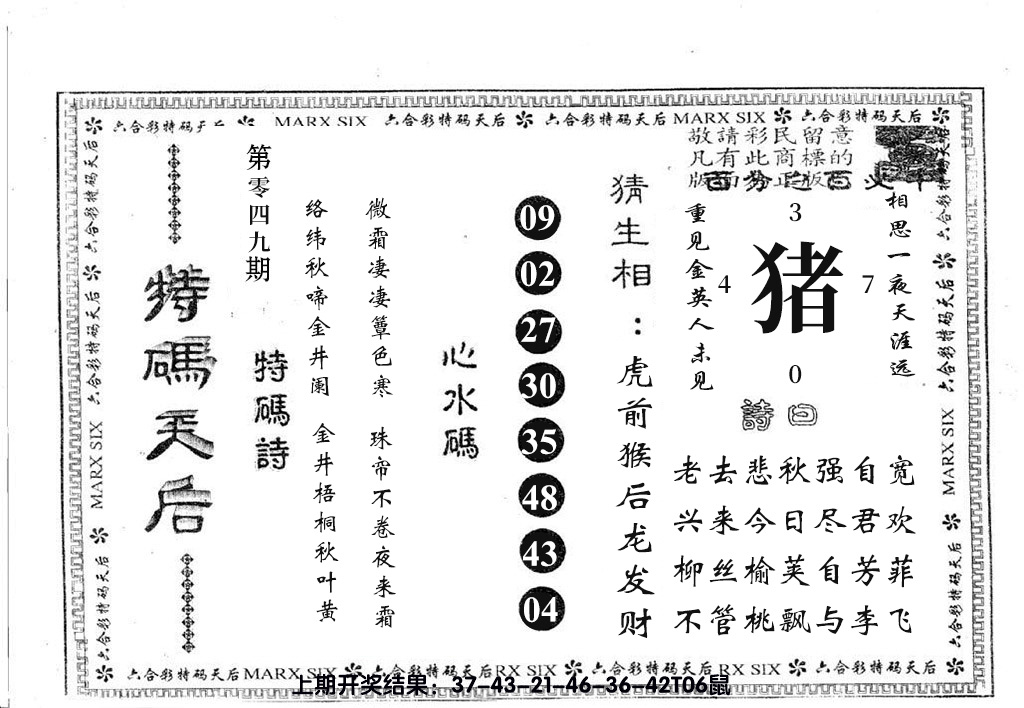 六合彩特码天后 MARX SIX 六合彩特码天后 六合彩特码天后 MARX SIX 六合彩特码天后
敬請彩民留意
凡有此商標的
相思一夜天涯远
3
4
猪
7
0
重见金英人未见
曰
詩
老去悲秋强自宽
兴来今日尽君欢
柳丝榆荚自芳菲
不管桃飘与李飞
猜生相:虎前猴后龙发财
09
02
27
30
35
48
43
04
心水碼
微霜凄凄簟色寒 珠帘不卷夜来霜
络纬秋啼金井阑 金井梧桐秋叶黄
第零四九期
特碼詩
特碼天后
六合彩特码天后
六合彩特码天后
MARX SIX
六合彩特码天后
六合彩特码天后
六合彩特码天后
MARX SIX
六合彩特码天后
六合彩特码天后MARX SIX 六合彩特码天后RX SIX 六合彩特码天后RX SIX 六合彩特码天后
上期开奖结果：37-43-21-46-36-42T06鼠